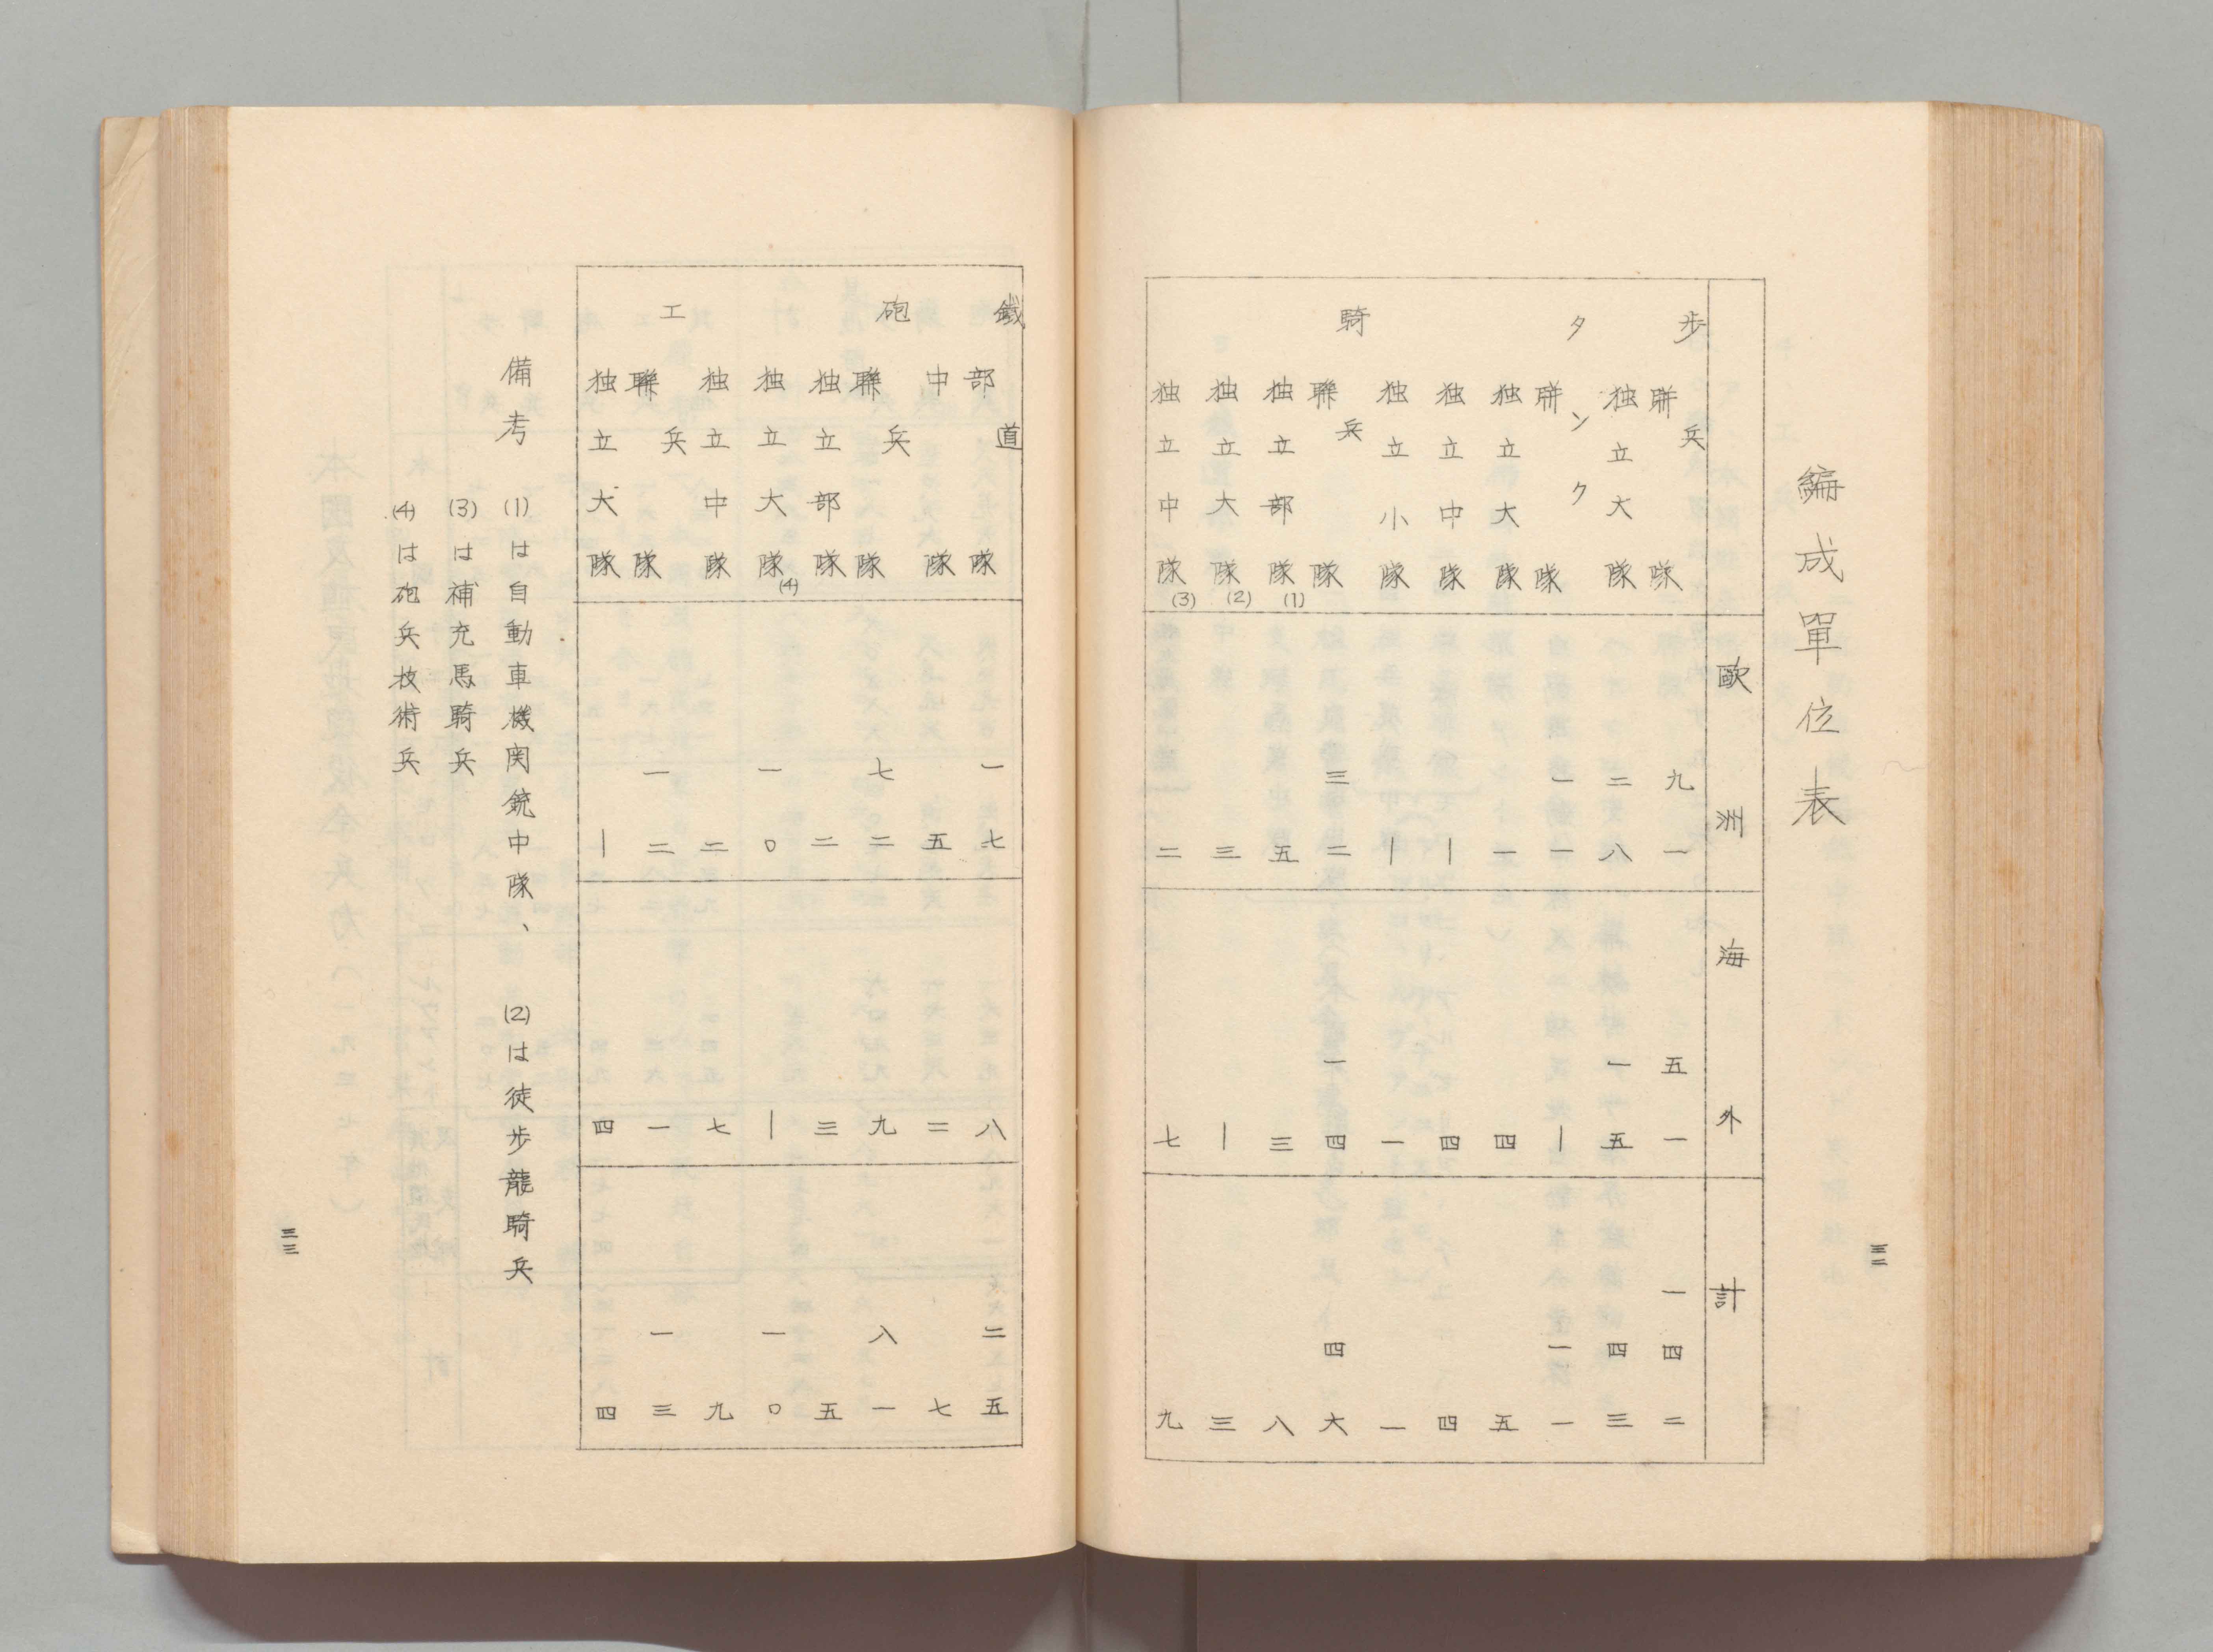 三二
編成單位表
歐洲 海外 計
歩兵
聯隊 九一 五一 一四二
独立大隊 二八 一五 四三
タンク
聯隊 一一 | 一一
独立大隊 一 四 五
独立中隊 | 四 四
独立小隊 | 一 一
騎兵
聯隊 三二 一四 四六
独立部隊(1) 五 三 八
独立大隊(2) 三 | 三
独立中隊(3) 二 七 九
鐵道
部隊 一七 八 二五
中隊 五 二 七
砲兵
聯隊 七二 九 八一
独立部隊 二 三 五
独立大隊(4) 一〇 | 一〇
独立中隊 二 七 九
工兵
聯隊 一二 一 一三
独立大隊 | 四 四
備考 (1)は自動車機関銃中隊、 (2)は徒歩龍騎兵
(3)は補充馬騎兵
(4)は砲兵技術兵
三三